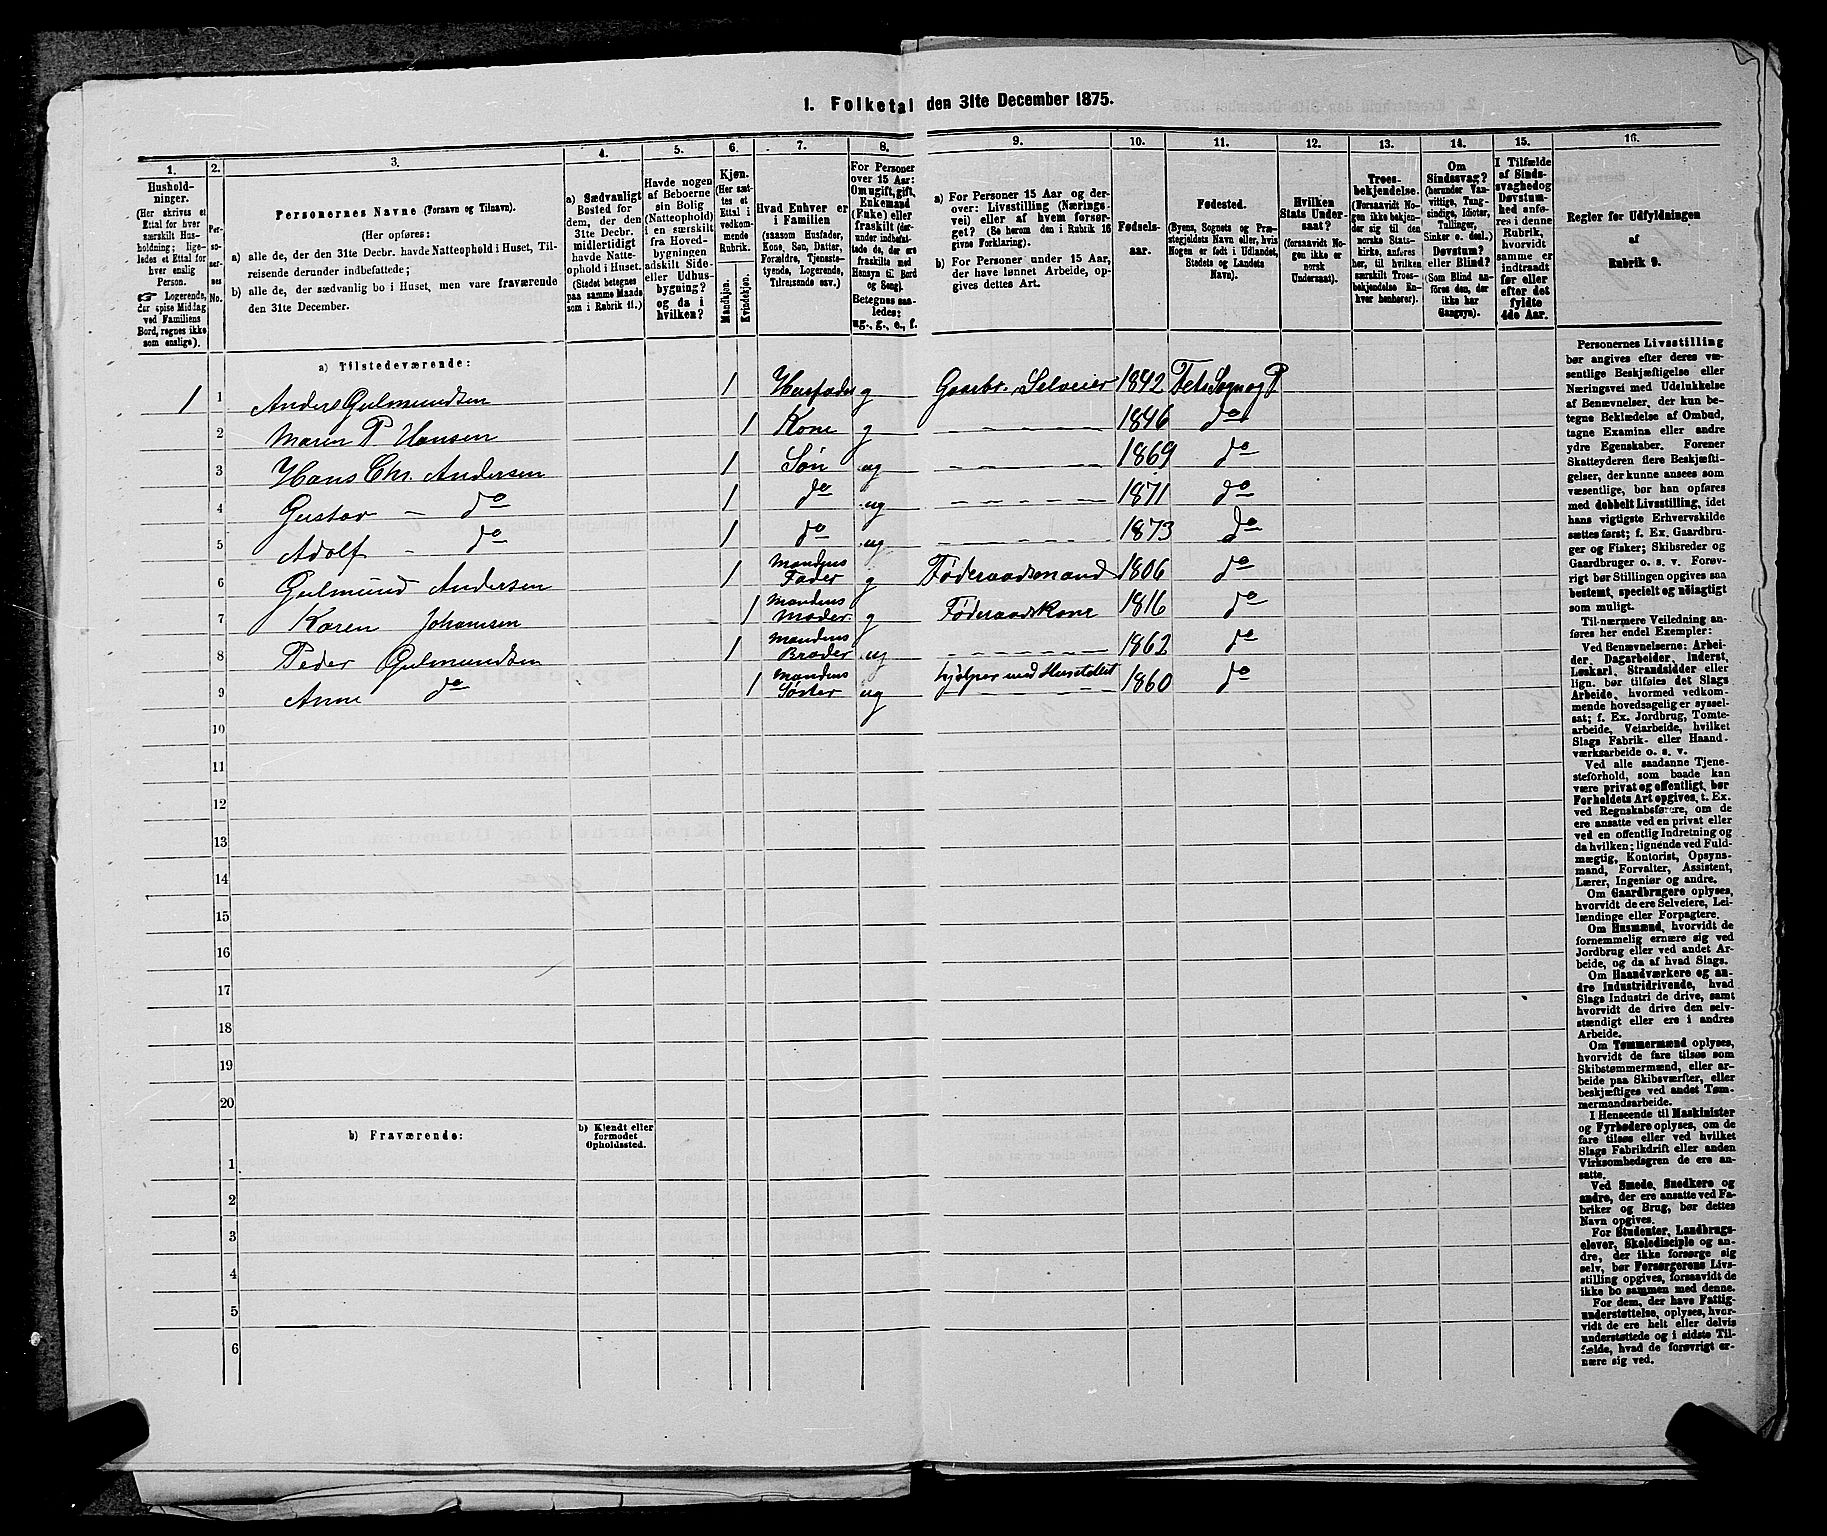 1. Folketal den 31te December 1875.
1. 2. 3. 4. 5. 6. 7. 8. 9. 10. 11. 12. 13. 14. 15. 16.
Hushold-
ninger.
(Her skrives et
Ettal for hver
særskilt Hus-
holdning; lige-
ledes et Ettal for
hver enslig
Person.
☞ Logerende,
der spise Middag
ved Familiens
Bord, regnes ikke
som enslige).
Per-
so-
ner-
nes
No.
Personernes Navne (Fornavn og Tilnavn).
(Her opføres:
a) alle de, der den 31te Decbr. havde Natteophold i Huset, Til-
reisende derunder indbefattede;
b) alle de, der sædvanlig bo i Huset, men vare fraværende
den 31te December.
a) Sædvanligt
Bosted for
dem, der den
31te Decbr.
midlertidigt
havde Natte-
ophold i Huset.
(Stedet betegnes
paa samme Maade
som i Rubrik 11.)
Havde nogen
af Beboerne
sin Bolig
(Natteophold)
i en særskilt
fra Hoved-
bygningen
adskilt Side-
eller Udhus-
bygning?
og da i
hvilken?
Kjøn.
(Her sæt-
tes et
Ettal i
vedkom-
mende
Rubrik.
Mandkjøn.
Kvindekjøn.
Hvad Enhver er
i Familien
(saasom Husfader,
Kone, Søn, Datter,
Forældre, Tjeneste-
tyende, Logerende,
Tilreisende osv.)
For Personer
over 15 Aar:
Om ugift, gift,
Enkemand
(Enke) eller
fraskilt (der-
under indbefat-
tede de, der ere
fraskilte med
Hensyn til Bord
og Seng).
Betegnes saa-
ledes:
ug., g., e., f.
a) For Personer 15 Aar og der-
over: Livsstilling (Nærings-
vei) eller af hvem forsør-
get? (Se herom den i Rubrik 16
givne Forklaring).
b) For Personer under 15 Aar,
der have lønnet Arbeide, op-
gives dettes Art.
Fødsels-
aar.
Fødested.
(Byens, Sognets og Præ-
stegjeldets Navn eller, hvis
Nogen er født i Udlandet,
Stedets og Landets
Navn).
Hvilken
Stats Under-
saat?
(forsaavidt No-
gen ikke er
norsk
Undersaat).
Troes-
bekjendelse.
(Forsaavidt No-
gen ikke bekjen-
der sig til den
norske Stats-
kirke, anføres
her, til hvilken
særskilt Troes-
bekjendelse En-
hver henhører).
Om
Sindssvag?
(herunder Van-
vittige, Tung-
sindige, Idioter,
Tullinger,
Sinker o. desl.)
Døvstum?
eller Blind?
(Som Blind an-
føres den, der
ikke har
Gangsyn).
I Tilfælde
af Sinds-
svaghed og
Døvstum-
hed anfø-
res i denne
Rubrik,
hvorvidt
samme er
indtraadt
før eller
efter det
fyldte
4de Aar.
Regler for Udfyldningen
af
Rubrik 9.
a) Tilstedeværende:
1 1 Anders Gulmundsen 1 Husfader g Gaardbr. Selveier 1842 Fets Sogn og P
2 Maren P Hansen 1 Kone g 1846 do
3 Hans Chr. Andersen 1 Søn ug 1869 do
4 Gustav – do 1 do ug 1871 do
5 Adolf – do 1 do ug 1873 do
6 Gulmund Andersen 1 Mandens Fader g Føderaadsmand 1806 do
7 Karen Johansen 1 Mandens Moder g Føderaadskone 1816 do
8 Peder Gulmundsen 1 Mandens Broder ug 1862 do
9 Anne do 1 Mandens Søster ug hjelper med Husstellet 1860 do
10
11
12
13
14
15
16
17
18
19
20
b) Fraværende:
b) Kjendt eller
formodet
Opholdssted.
1
2
3
4
5
6
Personernes Livsstilling
bør angives efter deres væ-
sentlige Beskjæftigelse eller
Næringsvei med Udelukkelse
af Benævnelser, der kun be-
tegne Beklædelse af Ombud,
tagne Examina eller andre
ydre Egenskaber. Forener
Skatteyderen flere Beskjæfti-
gelser, der kunne ansees som
væsentlige, bør han opføres
med dobbelt Livsstilling, idet
hans vigtigste Erhvervskilde
sættes først; f. Ex. Gaardbru-
ger og Fisker; Skibsreder og
Gaardbruger o. s. v. Forøv-
rigt bør Stillingen opgives saa
bestemt, specielt og nøiagtigt
som muligt.
Til nærmere Veiledning an-
føres her endel Exempler:
Ved Benævnelserne: Arbei-
der, Dagarbeider, Inderst,
Løskarl, Strandsidder eller
lign. bør tilføies det Slags
Arbeide, hvormed vedkom-
mende hovedsagelig er syssel-
sat; f. Ex. Jordbrug, Tomte-
arbeide, Veiarbeide, hvilket
Slags Fabrik- eller Haand-
værksarbeide o. s. v.
Ved alle saadanne Tjene-
steforhold, som baade kan
være privat og offentligt, bør
Forholdets Art opgives, t. Ex.
ved Regnskabsførere, om de
ere ansatte ved en privat eller
ved en offentlig Indretning og
da hvilken; lignende ved Fuld-
mægtig, Kontorist, Opsyns-
mand, Forvalter, Assistent,
Lærer, Ingeniør og andre.
Om Gaardbrugere oplyses,
hvorvidt de ere Selveiere, Lei-
lændinge eller Forpagtere.
Om Husmænd, hvorvidt de
fornemmelig ernære sig ved
Jordbrug eller ved andet Ar-
beide, og da af hvad Slags.
Om Haandværkere og an-
dre Industridrivende, hvad
Slags Industri de drive, samt
hvorvidt de drive den selv-
stændigt eller ere i andres
Arbeide.
Om Tømmermænd oplyses,
hvorvidt de fare tilsøs som
Skibstømmermænd, eller ar-
beide paa Skibsværfter, eller
beskjæftiges ved andet Tøm-
mermandsarbeide.
I Henseende til Maskinister
og Fyrbødere oplyses, om de
fare tilsøs eller ved hvilket
Slags Fabrikdrift eller anden
Virksomhedsgren de ere an-
satte.
Ved Smede, Snedkere og
andre, der ere ansatte ved Fa-
briker og Brug, bør dettes
Navn opgives.
For Studenter, Landbrugs-
elever, Skoledisciple og an-
dre, der ikke forsørge sig
selv, bør Forsørgerens Livs-
stilling opgives, forsaavidt de
ikke bo sammen med denne.
For dem, der have Fattig-
understøttelse, oplyses, hvor-
vidt de ere helt eller delvis
understøttede og i sidste Til-
fælde, hvad de forøvrigt er-
nære sig ved.